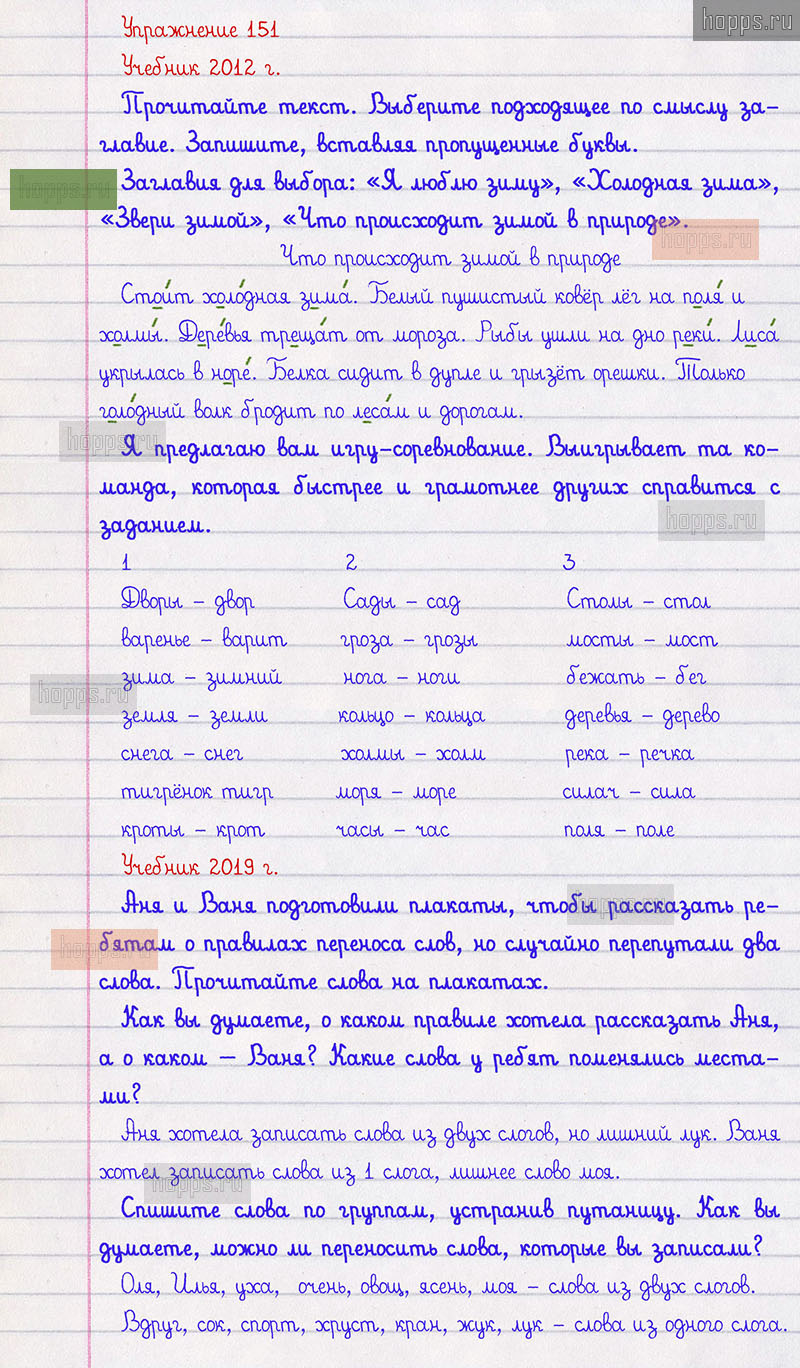 hopps.ru
Упражнение 151
Учебник 2012 г.
Прочитайте текст. Выберите подходящее по смыслу за-
главие. Запишите, вставляя пропущенные буквы.
hopps.ru
Заглавия для выбора: «Я люблю зиму», «Холодная зима»,
«Звери зимой», «Что происходит зимой в природе».
hopps.ru
Что происходит зимой в природе
Стои́т холо́дная зима́. Белый пушистый ковёр лёг на поля́ и
холмы́. Дере́вья треща́т от мороза. Рыбы ушли на дно реки́. Лиса́
укрылась в норе́. Белка сидит в дупле и грызёт орешки. Только
голо́дный волк бродит по леса́м и дорогам.
hopps.ru
Я предлагаю вам игру-соревнование. Выигрывает та ко-
манда, которая быстрее и грамотнее других справится с
заданием.
hopps.ru
1 2 3
Дворы – двор Сады – сад Столы – стол
варенье – варит гроза – грозы мосты – мост
зима – зимний нога – ноги бежать – бег
hopps.ru
земля – земли кольцо – кольца деревья – дерево
снега – снег холмы – холм река – речка
тигрёнок тигр моря – море силач – сила
кроты – крот часы – час поля – поле
Учебник 2019 г.
Аня и Ваня подготовили плакаты, чтобы рассказать ре-
hopps.ru
бятам о правилах переноса слов, но случайно перепутали два
hopps.ru
слова. Прочитайте слова на плакатах.
Как вы думаете, о каком правиле хотела рассказать Аня,
а о каком – Ваня? Какие слова у ребят поменялись места-
ми?
Аня хотела записать слова из двух слогов, но лишний лук. Ваня
хотел записать слова из 1 слога, лишнее слово моя.
hopps.ru
Спишите слова по группам, устранив путаницу. Как вы
думаете, можно ли переносить слова, которые вы записали?
Оля, Илья, уха, очень, овощ, ясень, моя – слова из двух слогов.
Вдруг, сок, спорт, хруст, кран, жук, лук – слова из одного слога.